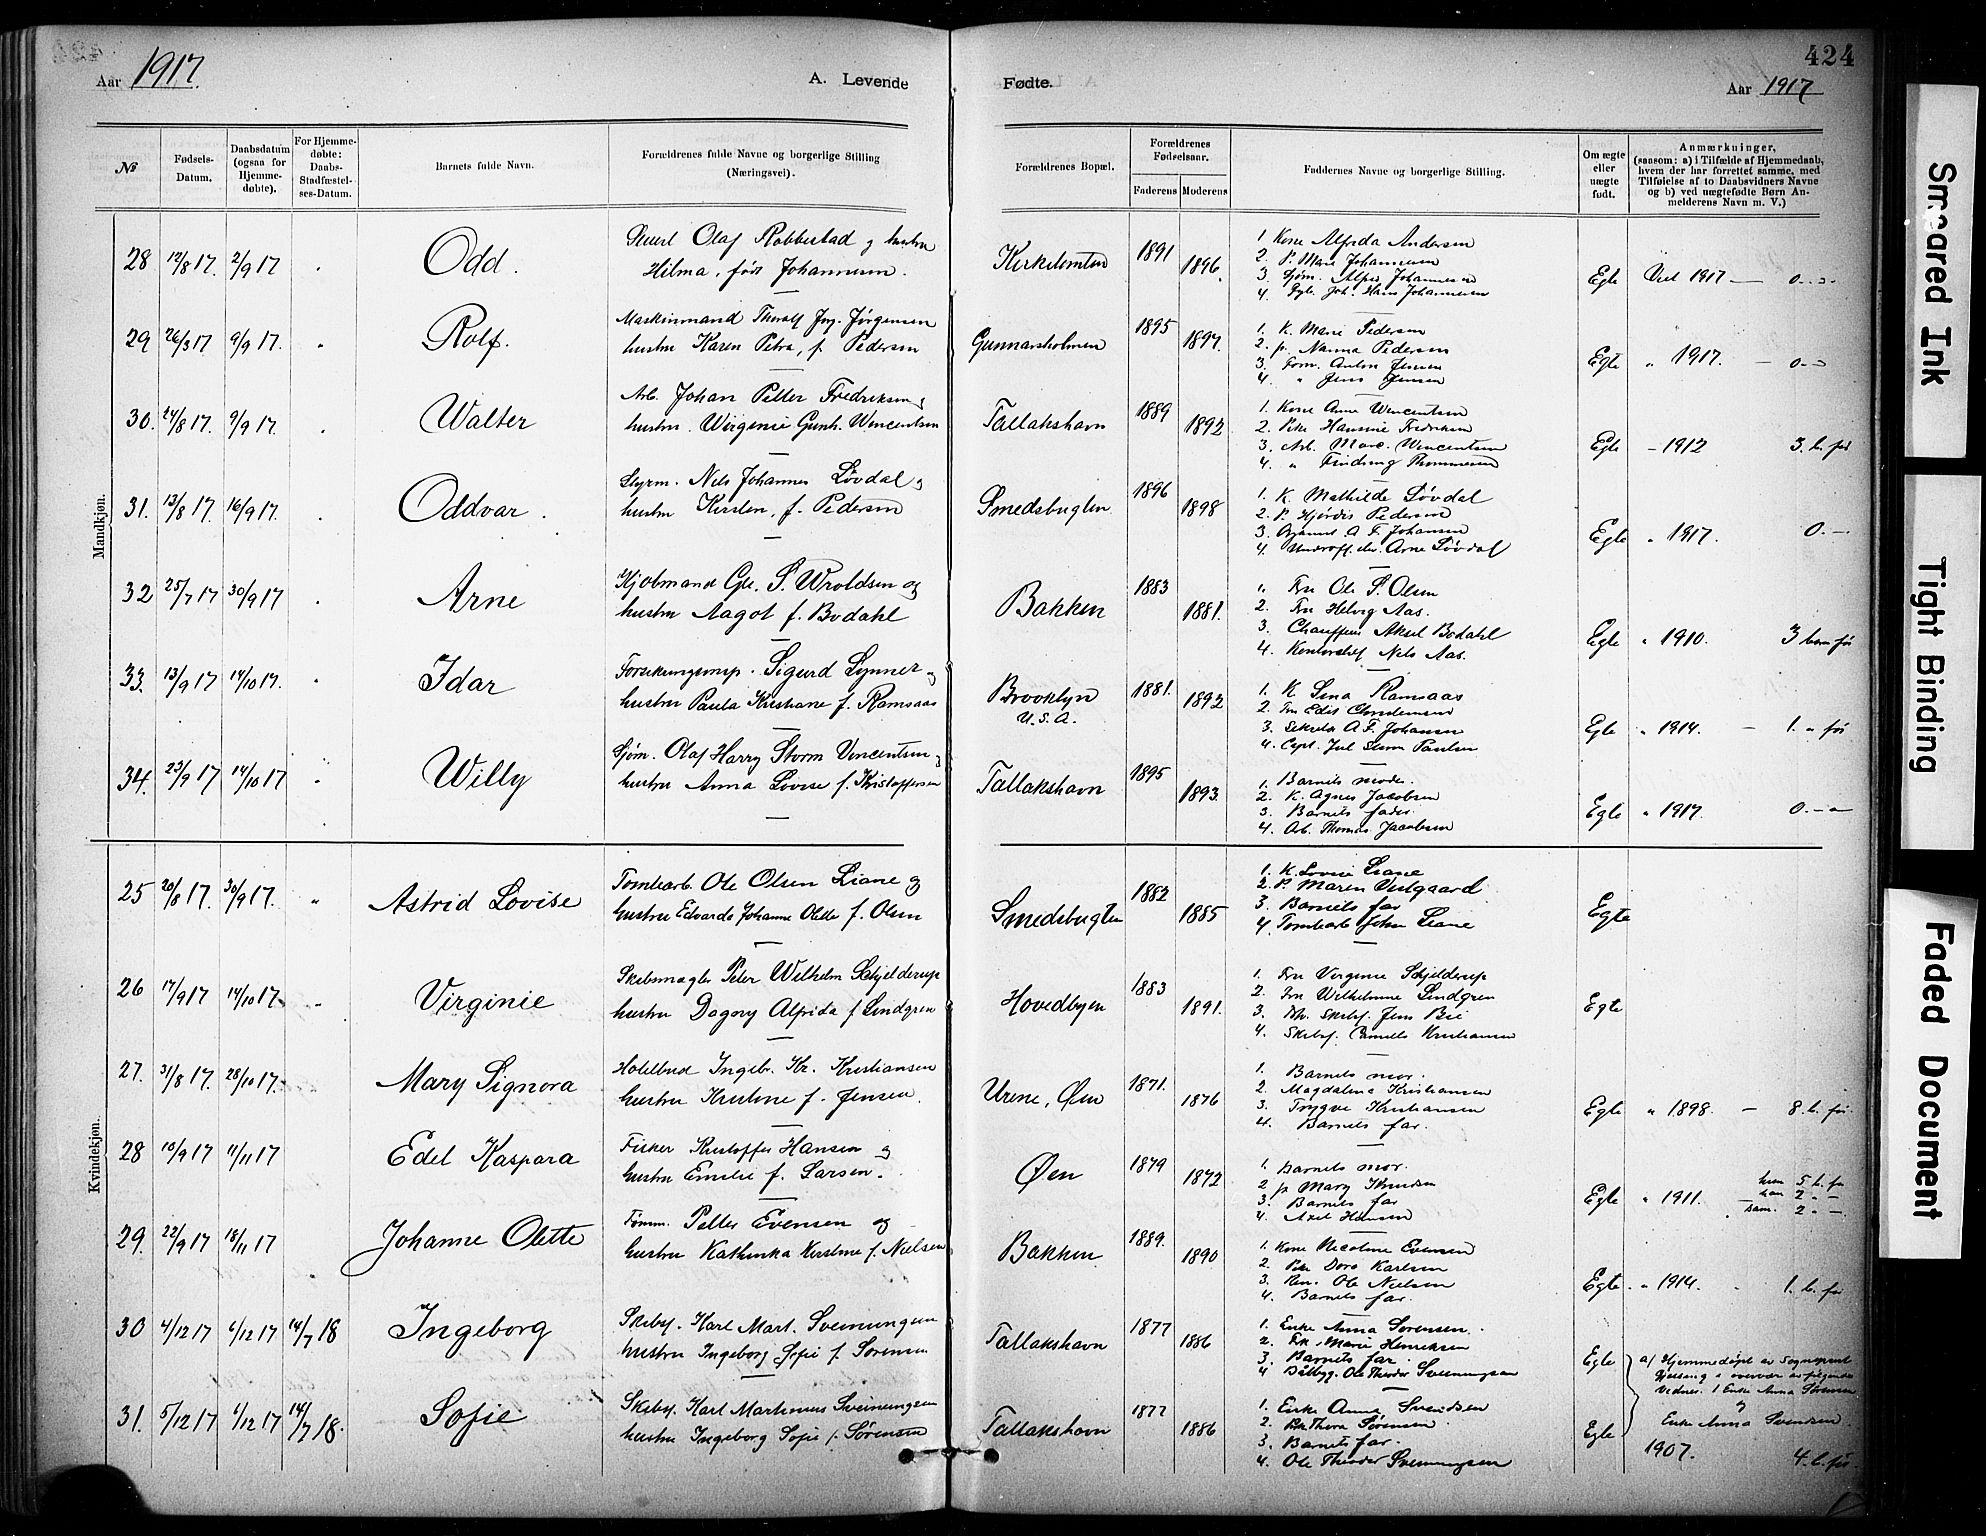 Aar 1917. A. Levende
№ Fødsels-Datum. Daabsdatum (ogsaa for Hjemmedøbte). For Hjemmedøbte: Daabs-Stadfæstelses-Datum. Barnets fulde Navn. Forældrenes fulde Navne og borgerlige Stilling (Næringsvei).
Mandkjøn.
28 12/8 17. 2/9 17 " Odd. Olaf Robbestad og hustru
Hilma, født Johannesen.
29 26/3 17 9/9 17. " Rolf. Maskinmand Thoralf Jørgensen
hustru Karen Petra, f. Pedersen
30. 24/8 17. 9/9 17. " Walter Arb. Johan Petter Fredriksen og
hustru Wirginie Gunh. Wincentsen
31. 13/8 17. 16/9 17. " Oddvar. Styrm. Nils Johannes Løvdal og
hustru Kirsten, f. Pedersen
32 25/7 17 30/9 17 " Arne Kjøbmand Gle. S. Wroldsen og
hustru Aagot f. Bodahl
33. 13/9 17 14/10 17. " Idar Sigurd Lynner og
hustru Paula Kristiane f. Ramsaas
34. 23/9 17 14/10 17 " Willy Sjøm. Olaf Harry Storm Vincentsen og
hustru Anna Lovise f. Kristoffersen
Kvindekjøn.
25 20/8 17. 30/9 17. " Astrid Lovise Tomtearb. Ole Olsen Liane og
hustru Edvarda Johanne Olette f. Olsen
26 17/9 17 14/10 17 " Virginie Skibsmægler Peter Wilhelm Schjelderup
hustru Dagny Alfrida f. Lindgren
27. 31/8 17. 28/10 17. Mary Signora Hotelbud Ingebr. Kr. Kristiansen
hustru Kristine f. Jensen.
28 10/9 17 11/11 17 Edel Kaspara Fisker Kristoffer Hansen og
hustru Emilie f. Larsen.
29. 22/9 17 18/11 17 Johanne Olette Tømm. Petter Evensen og
hustru Kathinka Kirstine f. Nielsen
30 4/12 17 6/12 17 14/7 18 Ingeborg Skibsf. Karl Mart. Sveinungsen
hustru Ingeborg Sofie f. Sørensen
31. 5/12 17 6/12 17 14/7 18. Sofie Skibsf. Karl Martinius Sveinungsen
hustru Ingeborg Sofie f. Sørensen
424
Fødte. Aar 1917
Forældrenes Bopæl. Forældrenes Fødselsaar. Faderens Moderens Faddernes Navne og borgerlige Stilling. Om ægte eller uægte født. Anmærkninger, (saasom: a) i Tilfælde af Hjemmedaab, hvem der har forrettet samme, med Tilføielse af to Daabsvidners Navne og b) ved uægtefødte Børn Anmelderens Navn m. V.)
Kirketomten 1891 1896. 1. Kone Alfrida Andersen
2. P. Marie Johannesen
3. Sjøm. Alfred Johannesen
4. Joh. Hans Johannesen
Egte Viet 1917 — 0
Gunnarsholmen 1895 1897. 1. K. Marie Pedersen
2. p. Nanna Pedersen
3. Tom. Anton Jensen
4. " Jens Jensen
Egte " 1917. — 0
Tallakshavn 1889 1892 1. Kone Anne Wincentsen
2. Pike Hansine Fredriksen
3. Arb. Marc. Wincentsen
4. " Thommesen
Egte - 1912 3 b. før
Smedsbugten 1896 1898 1. K. Mathilde Løvdal
2. P. Hjørdis Pedersen
3. A. F. Johansen
4. Arne Løvdal
Egte " 1917. 0.
Bakken 1883 1881. " Fru Ole P. Olsen
2. Fru Helvig Aas.
3. Chauffeur Aksel Bodahl
4. Kontorchef Nils Aas.
Egte " 1910. 3 barn før
Brooklyn
U.S.A. 1881. 1892 1. K. Lina Ramsaas
2. Fru Edis Christensen
3. Sekretær A F. Johansen
4. Capt. Jul Storm Paulsen
Egte " 1914. — 1. " før
Tallakshavn 1895 1893. 1. Barnets moder.
2. K. Agnes Jacobsen
3. Barnets fader
4. Arb. Thomas Jacobsen
Egte " 1917. 0.
Smedsbugten 1882 1885 1. K. Lovise Liane
2. P. Maren Vestgaard
3. Barnets far
4. Tomtearb John Liane
Egte
Hovedbyen 1883 1891. 1. Fru Virginie Schjelderup
2. Fru Wilhelmine Lindgren
3. Skibsf. Jens Bie
4. Skibsf. Kristiansen
Egte
Urene, Øen 1871. 1876 1. Barnets mor.
2. Magdalena Kristiansen
3. Trygve Kristiansen
4. Barnets far.
Egte " 1898. — 8. b. før.
Øen 1879 1872 1. Barnets mor.
2 p. Mary Knudsen
3. Barnets far
4. Axel Hansen
Egte " 1911. hun 5 b. før
han 2 " —
sam. 2 " —
Bakken 1889. 1890 1. Kone Nicoline Evensen
2. Pike Dora Karlsen
3. Ole Nielsen
4. Barnets far.
Egte " 1914 1. b. før
Tallakshavn 1877 1886 1. Enke Anna Sørensen.
2. Frk. Marie Henriksen
3. Barnets far.
4 Baatbyg. Ole Theodor Sveinungsen
Egte a/ Hjemmedøpt av Sogneprest
i overvær av følgende
vidner. 1 Enke Anna Sørensen
og
Enke Anna Svendsen.
Tallakshavn 1877 1886 1. Enke Anna Svendsen
2. Frk Thora Sørensen.
3. Barnets far.
4. Ole Theodor Sveinungsen
Egte 1907. 4. b. før.
Smeared Ink
Tight Binding
Faded Document